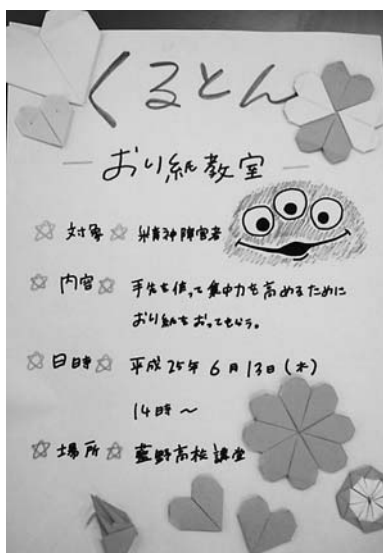 くるとん
おり紙教室
対象 精神障害者
内容 手先を使って集中力を高めるために
おり紙をおってもらう。
日時 平成25年6月13日(木)
14時〜
場所 藍野高校講堂